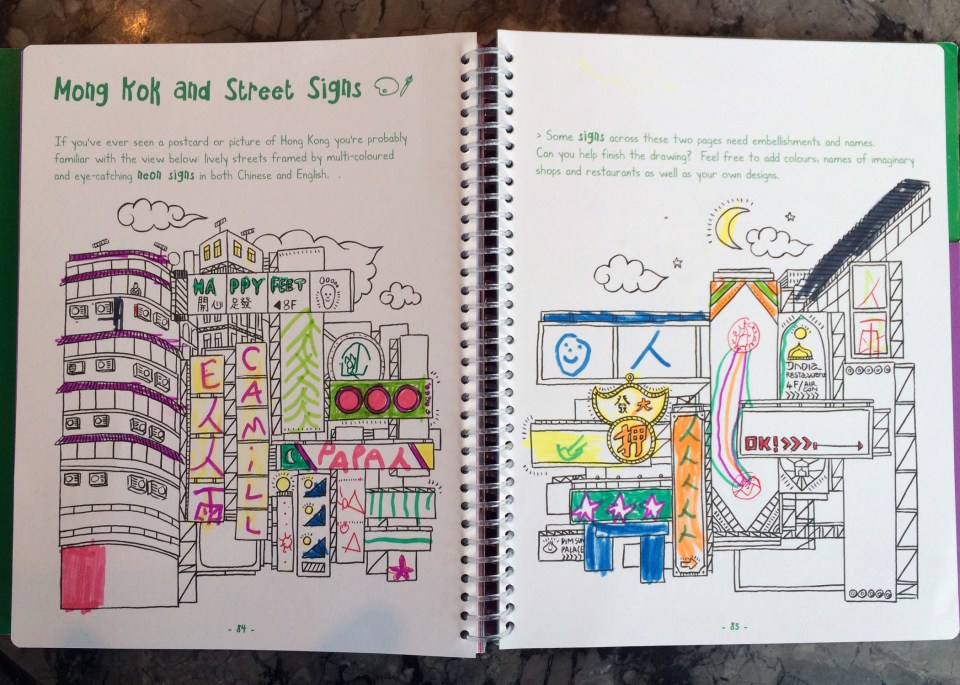 Mong Kok and Street Signs
If you've ever seen a postcard or picture of Hong Kong you're probably
familiar with the view below: lively streets framed by multi-coloured
and eye-catching neon signs in both Chinese and English.
HA PPY FEET
開心 足發 ◀8F
E人人雨
CAMiLL
PAPA人
- 84 -
> Some signs across these two pages need embellishments and names.
Can you help finish the drawing? Feel free to add colours, names of imaginary
shops and restaurants as well as your own designs.
人
發大
押
人人人人
DIM SUM
PALACE
>>>>>>
INDIA
RESTAURANT
4F/AIR
CON
>>>>>>
人
雨
OK!>>>:
- 85 -